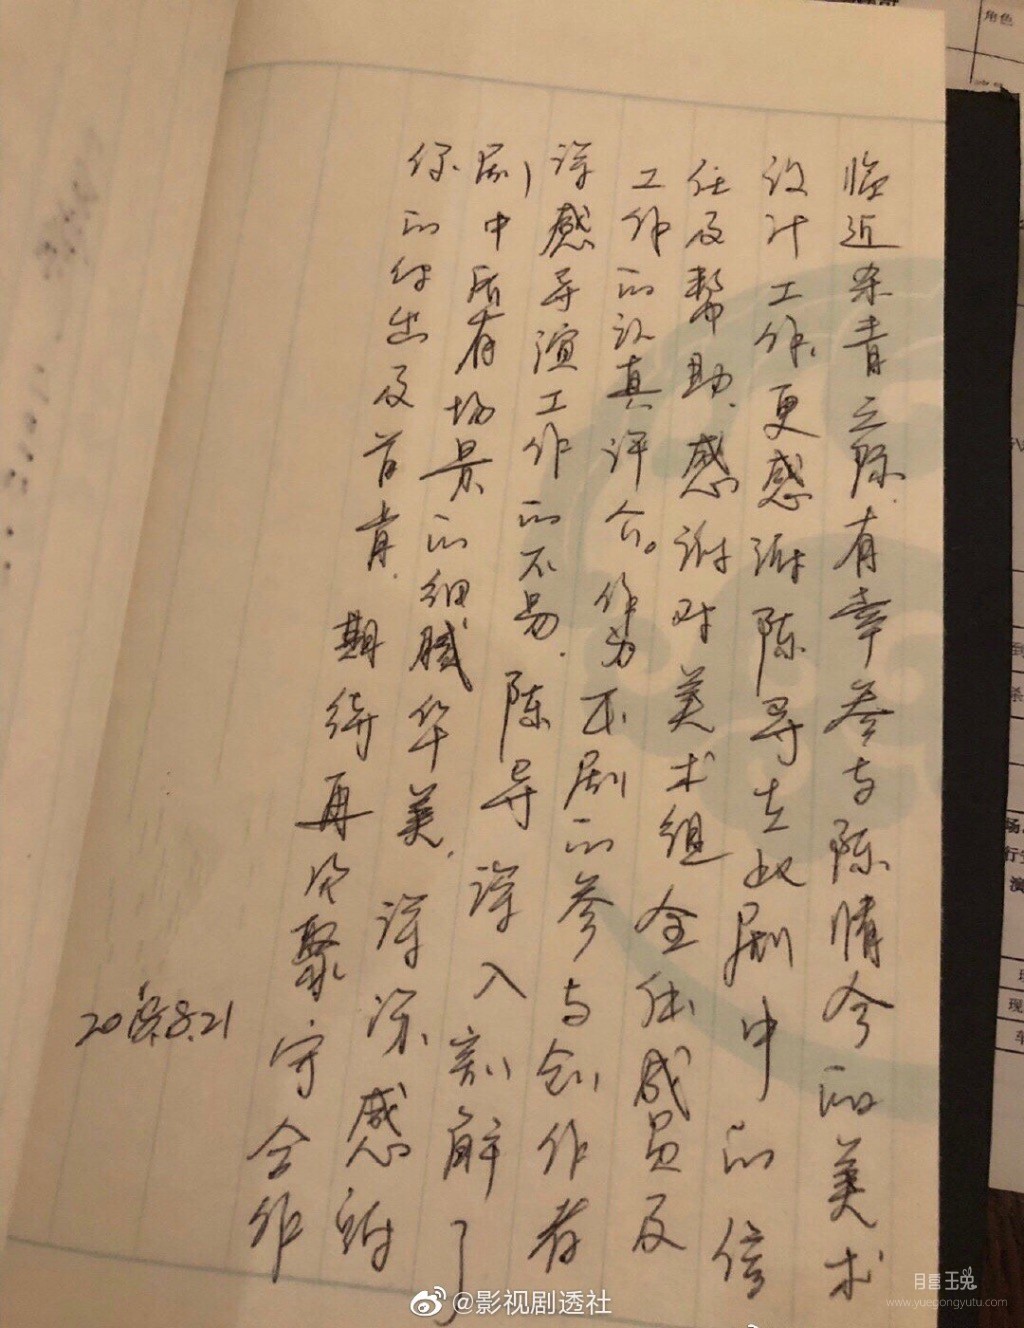 临近杀青之际.有幸参与陈情令的美术
设计工作.更感谢陈导在此剧中的信
任及帮助.感谢对美术组全体成员及
工作的认真评合。作为本剧的参与创作者
深感导演工作的不易.陈导深入刻解了
剧中所有场景的细腻华美.深深感谢
您的付出及首肯.期待再次聚守合作
2018.8.21
@影视剧透社
月雪玉兔
www.yuegongyutu.com
角色